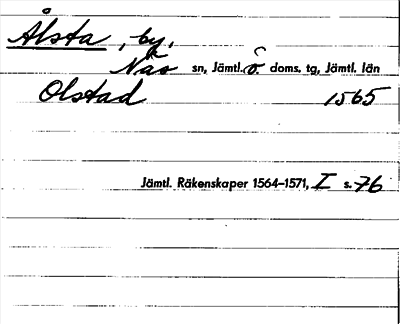 Ålsta, by,
Näs sn, Jämtl. ö. doms. tg, Jämtl. län
Olstad 1565
Jämtl. Räkenskaper 1564–1571, I s. 76